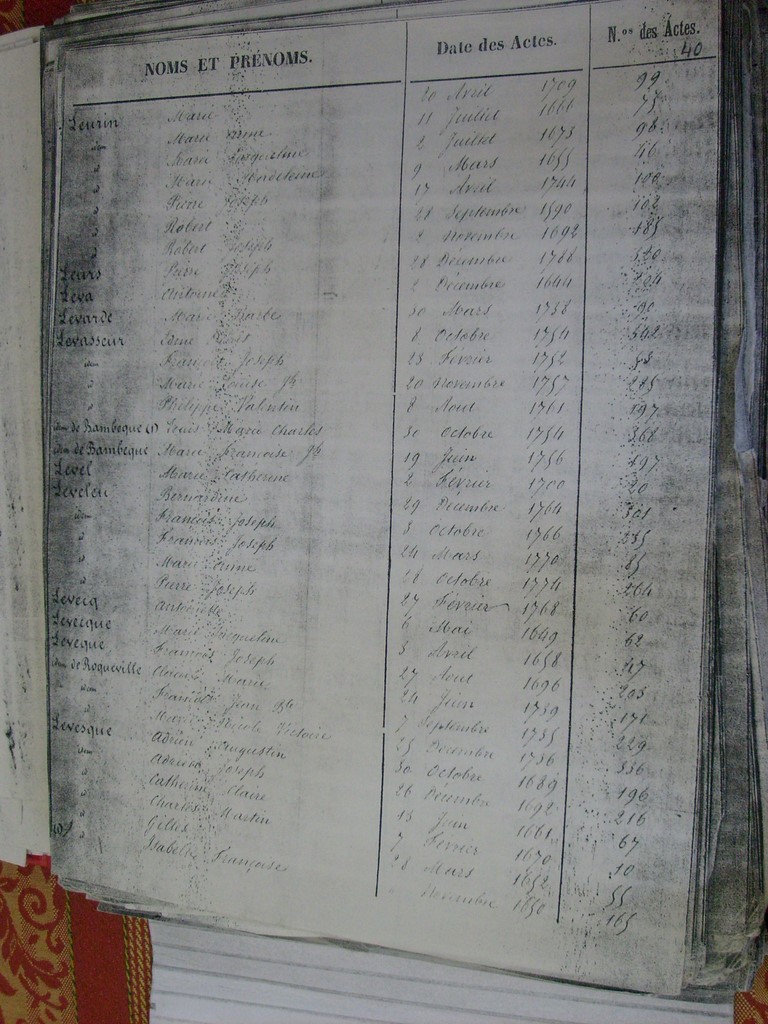 NOMS ET PRÉNOMS. Date des Actes. N.os des Actes.
40
Leurin Marie 20 Avril 1709 99
idem Marie Anne 11 Juillet 1666 75
" Marie Jacqueline 2 Juillet 1673 98
" Marie Madeleine 9 Mars 1655 46
" Pierre Joseph 17 Avril 1744 100
" Robert 28 Septembre 1590 102
" Robert Joseph 2 Novembre 1692 185
Leurs Pierre Joseph 28 Décembre 1788 520
Leva Antoine 2 Décembre 1644 204
Levarde Marie Barbe 30 Mars 1738 90
Levasseur 8 Octobre 1754 342
idem François Joseph 23 Février 1752
" Marie Louise Jh 20 Novembre 1757 285
" Philippe Valentin 8 Aout 1761 197
idem de Bambeque (1) Louis Marie Charles 30 Octobre 1754 368
idem de Bambeque Marie Françoise Jh 19 Juin 1756 197
Level Marie Catherine 2 Février 1700 20
Leveleu Bernardine 29 Décembre 1764 301
idem François Joseph 3 Octobre 1766 235
" François Joseph 24 Mars 1770 85
" Marie Anne 28 Octobre 1774 264
" Pierre Joseph 27 Février 1768 60
Levecq Antoinette 6 Mai 1649 62
Levecque Marie Jacqueline 3 Avril 1658 47
Leveque François Joseph 27 Aout 1696 205
idem de Roqueville Marie 24 Juin 1739 171
" idem François Jean Bte 7 Septembre 1735 229
" Marie Nicole Victoire 25 Décembre 1736 336
Levesque Adrien Augustin 30 Octobre 1689 196
idem Adrien Joseph 26 Décembre 1692 216
" Catherine Claire 13 Juin 1661 67
" Charles Martin 7 Février 1670 10
" Gilles 28 Mars 1652 55
" Isabelle Françoise Novembre 1650 165